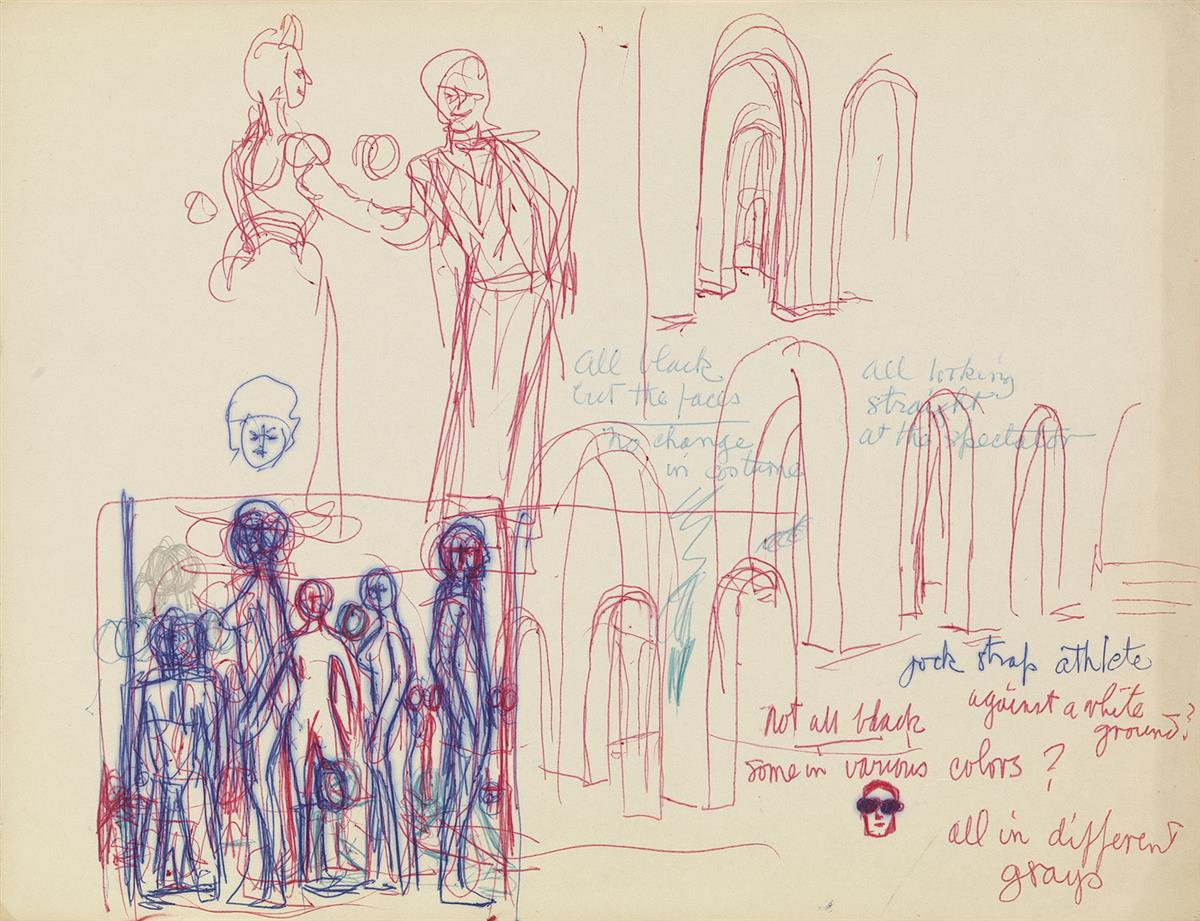 All black
but the faces
no change
in costume
all looking
straight
at the spectator
jock strap athlete
against a white
ground?
Not all black
some in various colors ?
all in different
grays